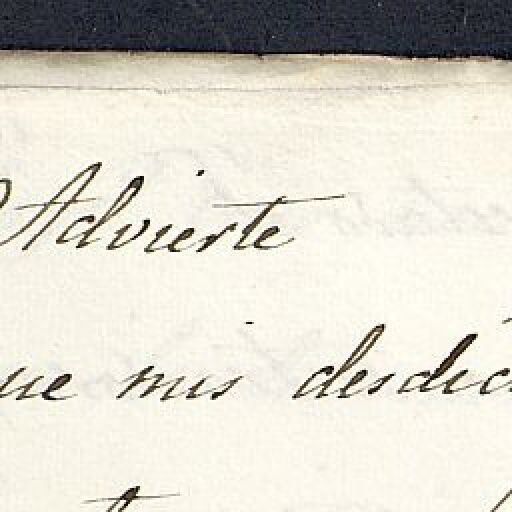 Advierte
ue mis desdic